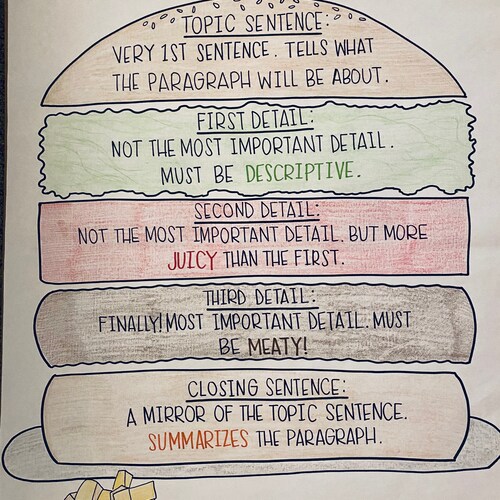 TOPIC SENTENCE:
VERY 1ST SENTENCE. TELLS WHAT
THE PARAGRAPH WILL BE ABOUT.
FIRST DETAIL:
NOT THE MOST IMPORTANT DETAIL.
MUST BE DESCRIPTIVE.
SECOND DETAIL:
NOT THE MOST IMPORTANT DETAIL, BUT MORE
JUICY THAN THE FIRST.
THIRD DETAIL:
FINALLY! MOST IMPORTANT DETAIL. MUST
BE MEATY!
CLOSING SENTENCE:
A MIRROR OF THE TOPIC SENTENCE.
SUMMARIZES THE PARAGRAPH.